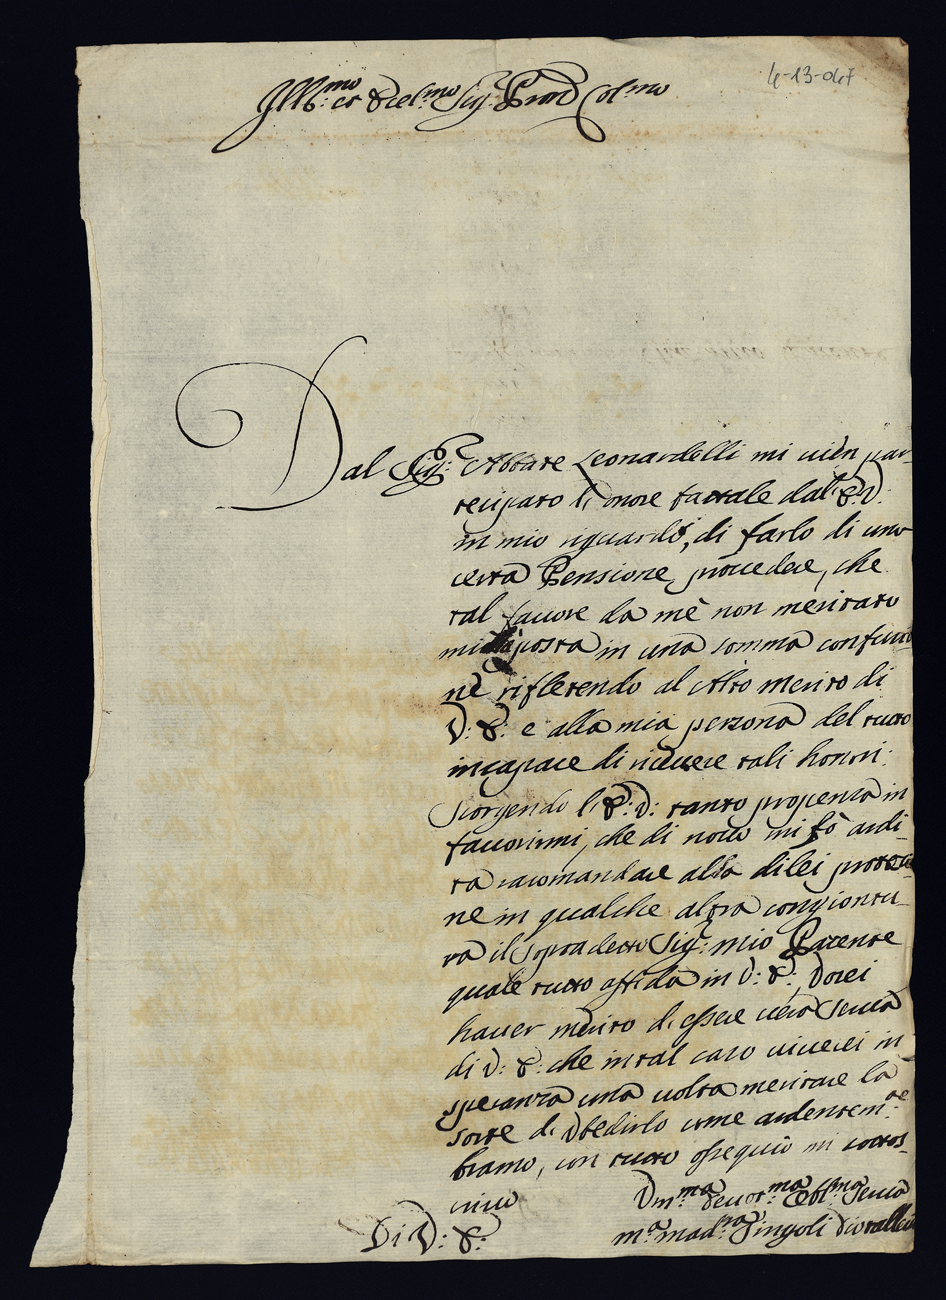 4-13-047
Ill:mo et Ecel:mo Sig: Pron Col:mo
Dal Sig: Abbate Leonardelli mi vien par-
tecipato l'onore fattole dal E:V:
in mio riguardo, di farlo di una
certa Pensione, procedere, che
tal favore da mè non meritato
mi posta in una somma confusio-
nè riflettendo al Alto merito di
V: E: e alla mia persona del tutto
incapace di ricevere tali honori.
Scorgendo l'E: V: tanto propensa in
favorirmi, che di novo mi fò ardi-
ta racomandare alla dilei protetio-
ne in qualche altra congiontu-
ra il sopradetto Sig: mio Parente
quale tutto affida in V: E:, Vorei
haver merito di essere vera Serva
di V: E: che in tal caso viverei in
speranza una volta meritare la
sorte di Obedirlo come ardentem:te
bramo, con tutto ossequio mi sottos-
crivo
Di V: E:
Um:ma devot:ma Obl:ma Serva
m:a mad:na Singoli